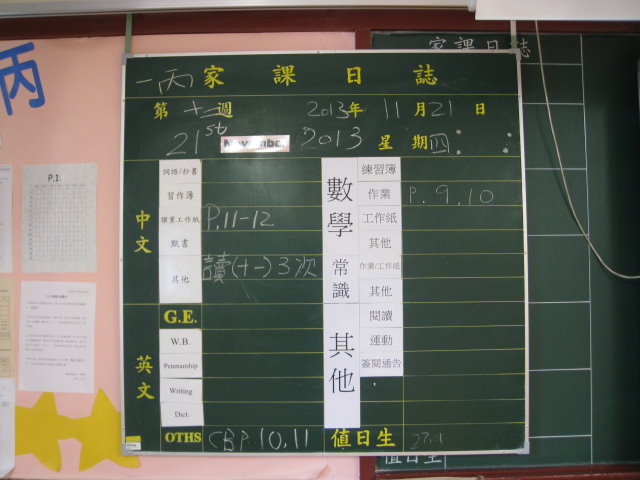 丙
家課日誌
一丙 家課日誌
第 十二 週 2013年 11月21日
21st November 2013 星期四
P.1
中文
詞語/抄書
習作簿
課堂工作紙 P.11-12
默書
其他 讀(十一)3次
英文
G.E.
W.B.
Penmanship
Writing
Dict.
OTHS CBP.10,11
數學
練習簿
作業 P.9,10
工作紙
其他
常識
作業/工作紙
其他
其他
閱讀
運動
簽閱通告
值日生
值日生